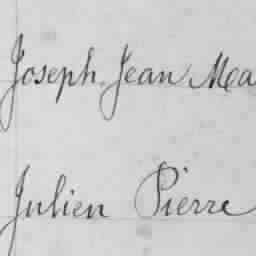 Joseph Jean Ma
Julien Pierre